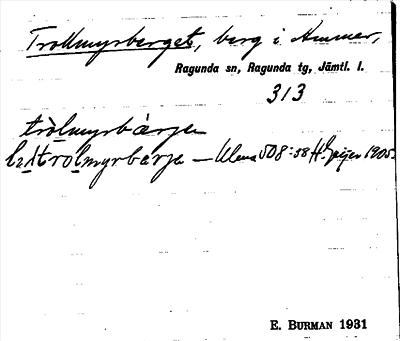 Trollmyrberget, berg i Ammer,
Ragunda sn, Ragunda tg, Jämtl. l.
313
tròlmyrbàrje
trolmyrbarje – Ulma 508:38 H. Geijer 1905.
E. BURMAN 1931